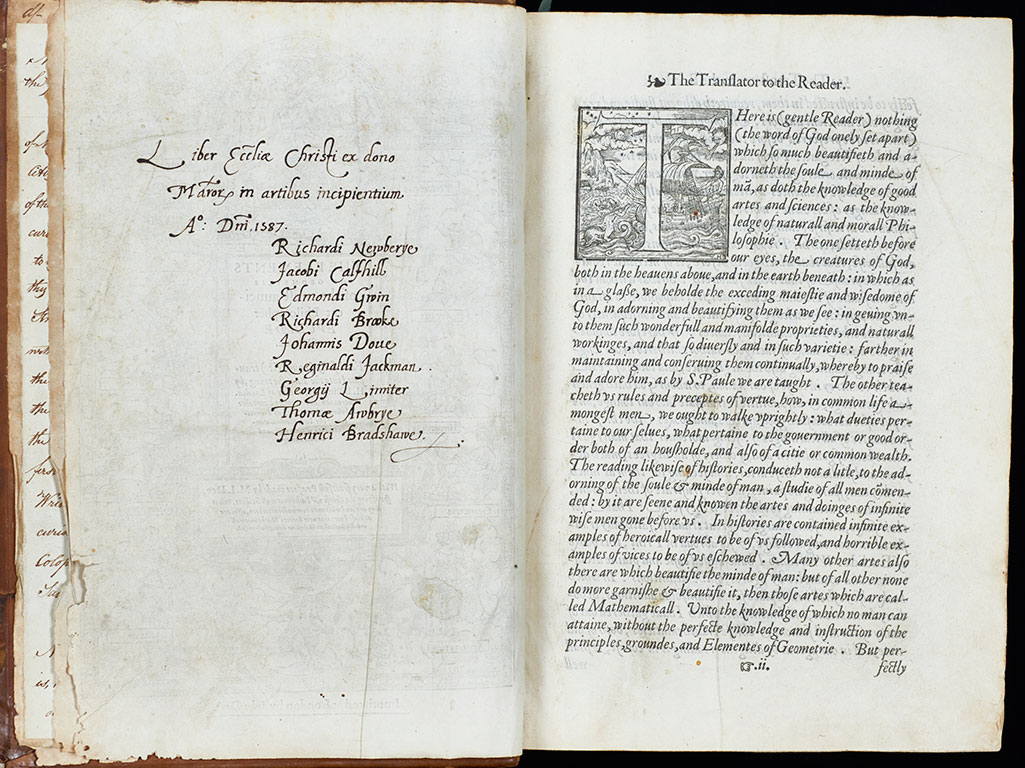 Liber Eccliæ Christi ex dono
in artibus incipientium
A°: Dni. 1587.
Richardi Newberye
Jacobi Calfhill
Edmondi Gwin
Richardi Brooke
Johannis Doue
Reginaldi Jackman.
Georgij Limiter
Thomæ Awbrye
Henrici Bradshawe.
The Tranſlator to the Reader.
THere is (gentle Reader) nothing
(the word of God onely ſet apart)
which ſo much beautifieth and a-
dorneth the ſoule and minde of
mã, as doth the knowledge of good
artes and ſciences: as the know-
ledge of naturall and morall Phi-
loſophie. The one ſetteth before
our eyes, the creatures of God,
both in the heauens aboue, and in the earth beneath: in which as
in a glaſſe, we beholde the exceding maieſtie and wiſedome of
God, in adorning and beautifying them as we ſee: in geuing vn-
to them ſuch wonderfull and manifolde proprieties, and naturall
workinges, and that ſo diuerſly and in ſuch varietie: farther in
maintaining and conſeruing them continually, whereby to praiſe
and adore him, as by S. Paule we are taught. The other tea-
cheth vs rules and preceptes of vertue, how, in common life a-
mongeſt men, we ought to walke vprightly: what dueties per-
taine to our ſelues, what pertaine to the gouernment or good or-
der both of an houſholde, and alſo of a citie or common wealth.
The reading likewiſe of hiſtories, conduceth not a litle, to the ad-
orning of the ſoule & minde of man, a ſtudie of all men cõmen-
ded: by it are ſeene and knowen the artes and doinges of infinite
wiſe men gone before vs. In hiſtories are contained infinite ex-
amples of heroicall vertues to be of vs followed, and horrible ex-
amples of vices to be of vs eſchewed. Many other artes alſo
there are which beautifie the minde of man: but of all other none
do more garniſhe & beautifie it, then thoſe artes which are cal-
led Mathematicall. Unto the knowledge of which no man can
attaine, without the perfecte knowledge and inſtruction of the
principles, groundes, and Elementes of Geometrie. But per-
☞.ii.
fectly